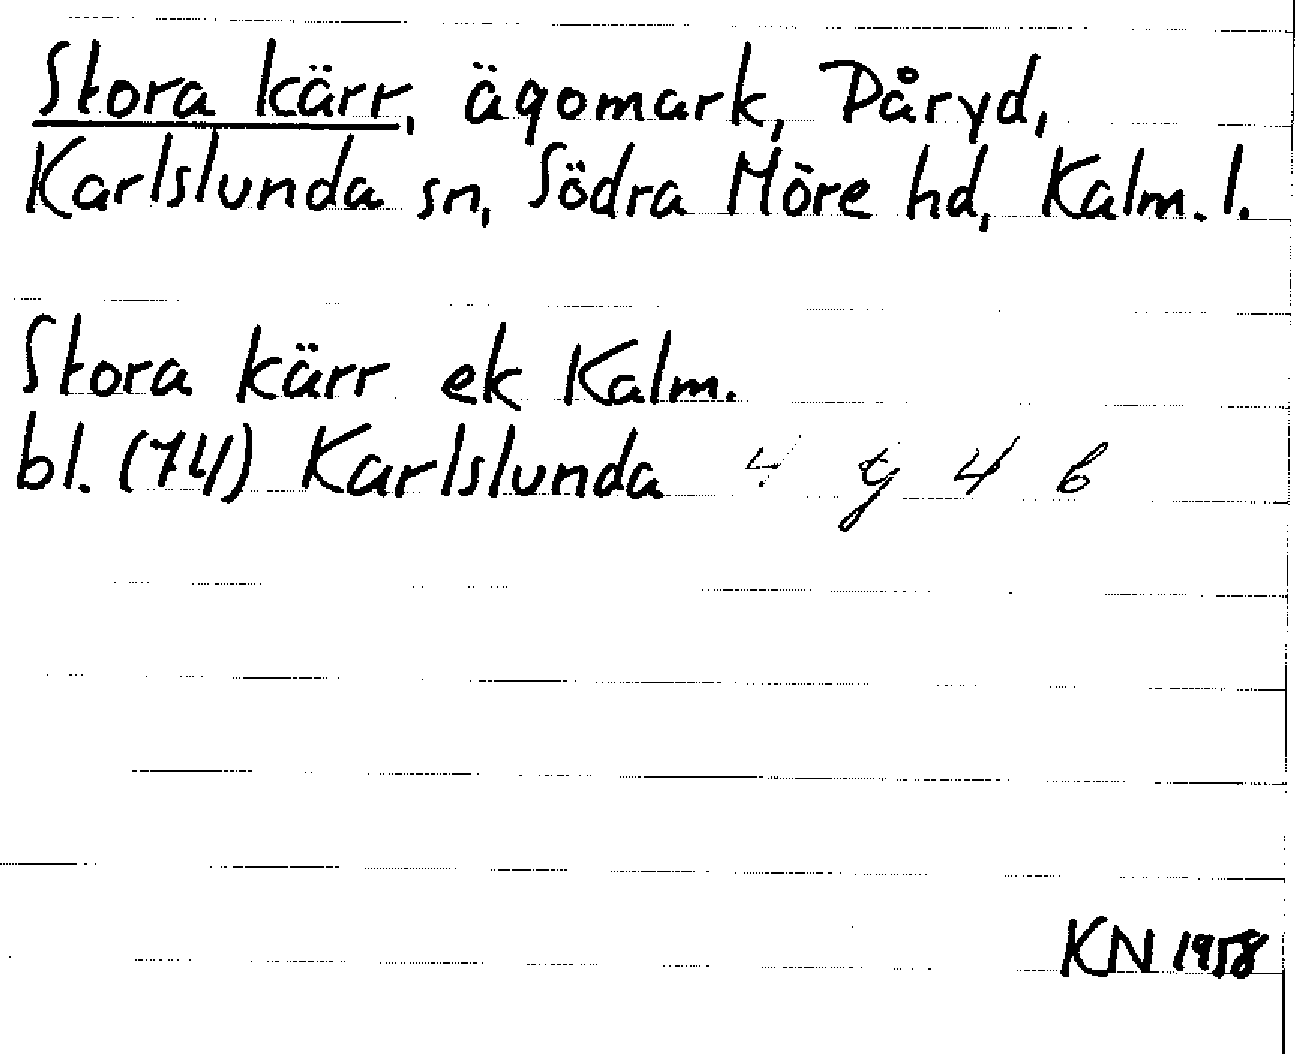 Stora kärr, ägomark, Påryd,
Karlslunda sn, Södra Möre hd, Kalm. l.
Stora kärr ek Kalm.
bl. (74) Karlslunda 4 g 4 b
KN 1958